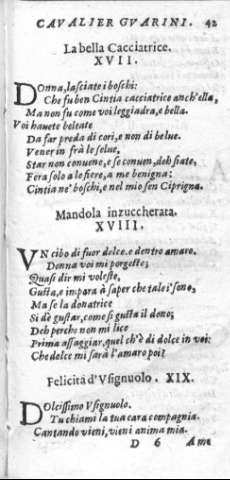 CAVALIER GVARINI. 42
La bella Cacciatrice.
XVII.
Donna, lasciate i boschi:
Che fu ben Cintia cacciatrice anch'ella,
Ma non fu come voi leggiadra, e bella.
Voi hauete beltate
Da far preda di cori, e non di belue.
Vener in frà le selue,
Star non conuene, e se conuen, deh siate,
Fera solo a le fiere, a me benigna:
Cintia ne' boschi, e nel mio sen Ciprigna.
Mandola inzuccherata.
XVIII.
VN cibo di fuor dolce, e dentro amaro.
Donna voi mi porgeste;
Quasi dir mi voleste,
Gusta, e impara à saper che tale i' sono,
Ma se la donatrice
Si dè gustar, come si gusta il dono;
Deh perche non mi lice
Prima assaggiar, quel ch'è di dolce in voi:
Che dolce mi sarà l'amaro poi?
Felicità d'Vsignuolo. XIX.
DOlcissimo Vsignuolo.
Tu chiami la tua cara compagnia.
Cantando vieni, vieni anima mia.
D 6 Ame